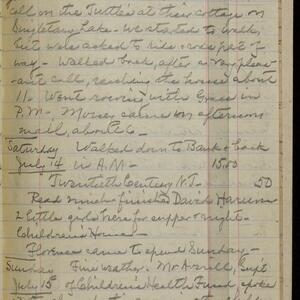 Call on the Tuttle's at their cottage on
Singletary Lake - we started to walk,
but were asked to ride over part of
way - Walked back, after a very pleas-
ant call, reaching the house about
11. Went rowing with Grace in
P.M. - came on afternoon
mail, about 6 -
Saturday Walked down to Bank & back
July 14 in A.M. - 15.00
Twentieth Century N.T. - 50
Read much - finished David Harum
2 little girls here for supper & night -
Children's Home -
Florence came to spend Sunday -
Sunday Fine weather. Mr. Supt
July 15th of Children's Health Fund, spoke